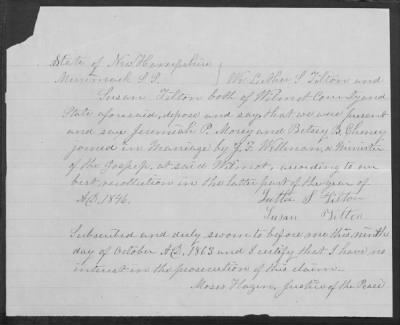 State of New Hampshire
Merrimack S S. } We Luther S Tilton and
Susan Tilton both of Wilmot County and
State aforesaid, depose and say, that we were present
and saw Jeremiah P. Morey and Betsey B. Cheney
joined in Marriage by J. F. Witheman, a Minister
of the Gospep, at said Wilmot, according to our
best recollection in the latter part of the year of
A.D. 1846.
Luther S Tilton
Susan Tilton
Subscribed and duly sworn to before me this ninth
day of October A.D. 1863 and I certify that I have no
interest in the prosecution of this claim.
Moses Hazen, Justice of the Peace